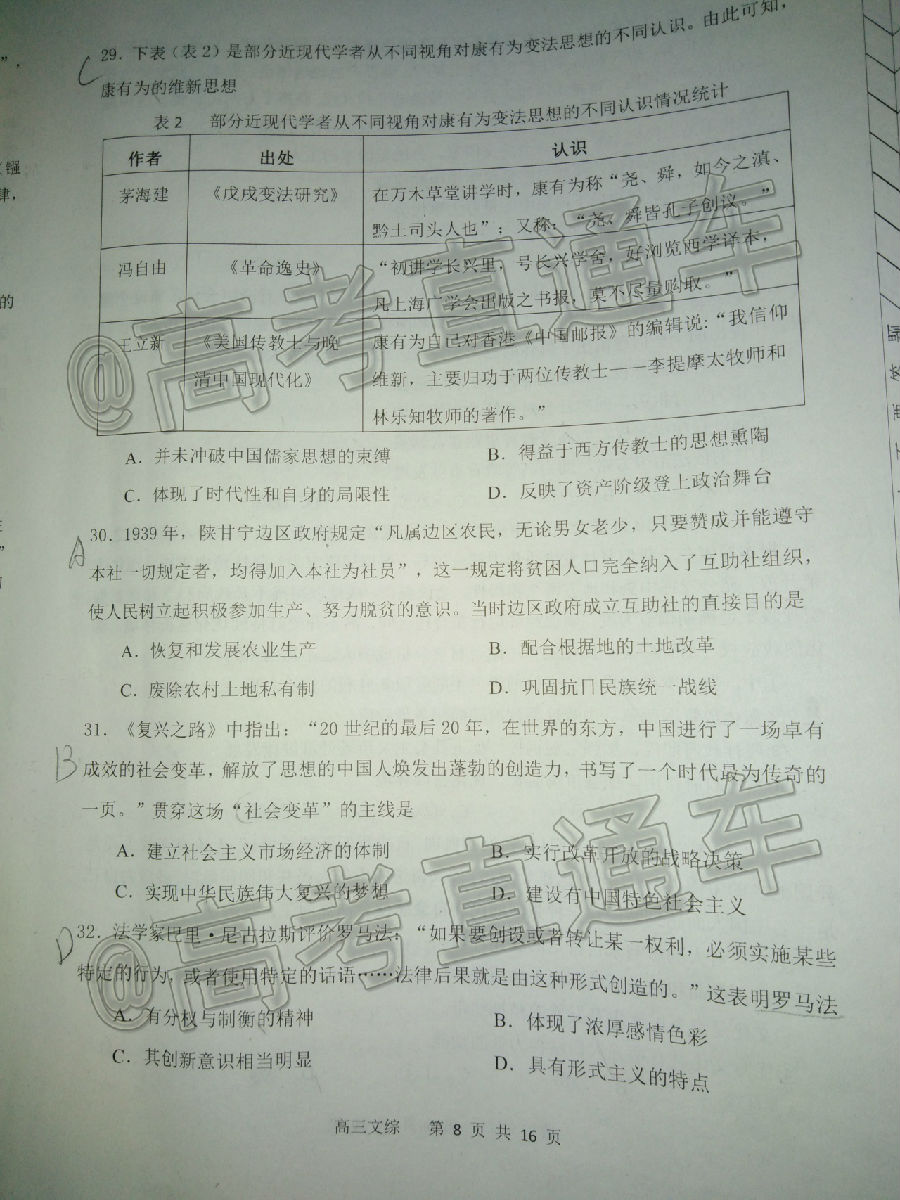 29．下表（表2）是部分近现代学者从不同视角对康有为变法思想的不同认识。由此可知，
C
康有为的维新思想
表2 部分近现代学者从不同视角对康有为变法思想的不同认识情况统计
作者 出处 认识
茅海建 《戊戌变法研究》 在万木草堂讲学时，康有为称“尧、舜，如今之滇、
黔土司头人也”；又称：“尧、舜皆孔子创议。”
冯自由 《革命逸史》 “初讲学长兴里，号长兴学舍，好浏览西学译本，
凡上海广学会出版之书报，莫不尽量购取。”
王立新 《美国传教士与晚 康有为自己对香港《中国邮报》的编辑说：“我信仰
清中国现代化》 维新，主要归功于两位传教士——李提摩太牧师和
林乐知牧师的著作。”
A．并未冲破中国儒家思想的束缚 B．得益于西方传教士的思想熏陶
C．体现了时代性和自身的局限性 D．反映了资产阶级登上政治舞台
30．1939年，陕甘宁边区政府规定“凡属边区农民，无论男女老少，只要赞成并能遵守
A
本社一切规定者，均得加入本社为社员”，这一规定将贫困人口完全纳入了互助社组织，
使人民树立起积极参加生产、努力脱贫的意识。当时边区政府成立互助社的直接目的是
A．恢复和发展农业生产 B．配合根据地的土地改革
C．废除农村土地私有制 D．巩固抗日民族统一战线
31．《复兴之路》中指出：“20世纪的最后20年，在世界的东方，中国进行了一场卓有
B
成效的社会变革，解放了思想的中国人焕发出蓬勃的创造力，书写了一个时代最为传奇的
一页。”贯穿这场“社会变革”的主线是
A．建立社会主义市场经济的体制 B．实行改革开放的战略决策
C．实现中华民族伟大复兴的梦想 D．建设有中国特色社会主义
32．法学家巴里·尼古拉斯评价罗马法：“如果要创设或者转让某一权利，必须实施某些
D
特定的行为，或者使用特定的话语……法律后果就是由这种形式创造的。”这表明罗马法
A．有分权与制衡的精神 B．体现了浓厚感情色彩
C．其创新意识相当明显 D．具有形式主义的特点
高三文综 第 8 页 共 16 页
@高考直通车
@高考直通车